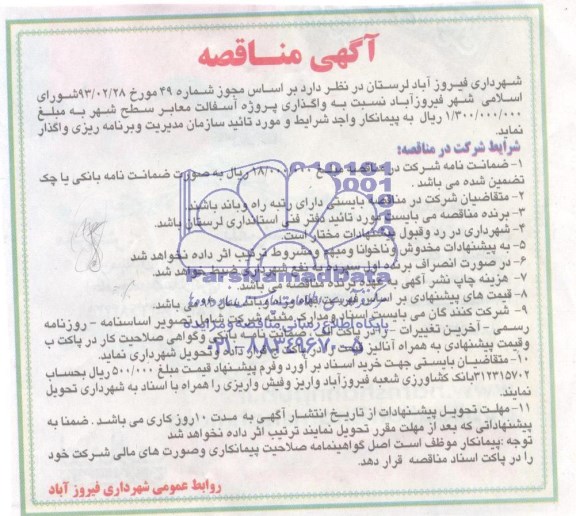 آگهی مناقصه
شهرداری فیروز آباد لرستان در نظر دارد بر اساس مجوز شماره ۴۹ مورخ ۹۳/۰۲/۲۸ شورای
اسلامی شهر فیروزآباد نسبت به واگذاری پروژه آسفالت معابر سطح شهر به مبلغ
۱/۳۰۰/۰۰۰/۰۰۰ ریال به پیمانکار واجد شرایط و مورد تائید سازمان مدیریت وبرنامه ریزی واگذار
نماید.
شرایط شرکت در مناقصه:
۱- ضمانت نامه شرکت در مناقصه مبلغ ریال به صورت ضمانت نامه بانکی یا چک
تضمین شده می باشد.
۲- متقاضیان شرکت در مناقصه بایستی دارای رتبه راه وباند باشند.
۳- برنده مناقصه می بایست مورد تائید دفتر فنی استانداری لرستان باشد.
۴- شهرداری در رد وقبول پیشنهادات مختار است.
۵- به پیشنهادات مخدوش وناخوانا ومبهم ومشروط ترتیب اثر داده نخواهد شد
۶- در صورت انصراف برنده اول سپرده به نفع شهرداری ضبط خواهد شد.
۷- هزینه چاپ نشر آگهی به عهده برنده مناقصه می باشد.
۸- قیمت های پیشنهادی بر اساس فهرست بهای می باشد.
۹- شرکت کنند گان می بایست اسناد ومدارک مثبته شرکت شامل تصویر اساسنامه - روزنامه
رسمی - آخرین تغییرات - را در پاکت الف - ضمانت نامه بانکی وگواهی صلاحیت کار در پاکت ب
وقیمت پیشنهادی به همراه آنالیز در پاکت ج قرار داده وتحویل شهرداری نماید.
۱۰- متقاضیان بایستی جهت خرید اسناد بر آورد وفرم پیشنهاد قیمت مبلغ ۵۰۰/۰۰۰ ریال بحساب
۳۱۲۳۱۵۷۰۲ بانک کشاورزی شعبه فیروزآباد واریز وفیش واریزی را همراه با اسناد به شهرداری تحویل
نمایند.
۱۱- مهلت تحویل پیشنهادات از تاریخ انتشار آگهی به مدت ۱۰ روز کاری می باشد . ضمنا به
پیشنهاداتی که بعد از مهلت مقرر تحویل نمایند ترتیب اثر داده نخواهد شد
توجه :پیمانکار موظف است اصل گواهینامه صلاحیت پیمانکاری وصورت های مالی شرکت خود
را در پاکت اسناد مناقصه قرار دهد.
روابط عمومی شهرداری فیروز آباد
ParsNamadData
پایگاه اطلاع رسانی مناقصه و مزایده
۰۲۱-۸۸۳۴۹۶۷۰-۵